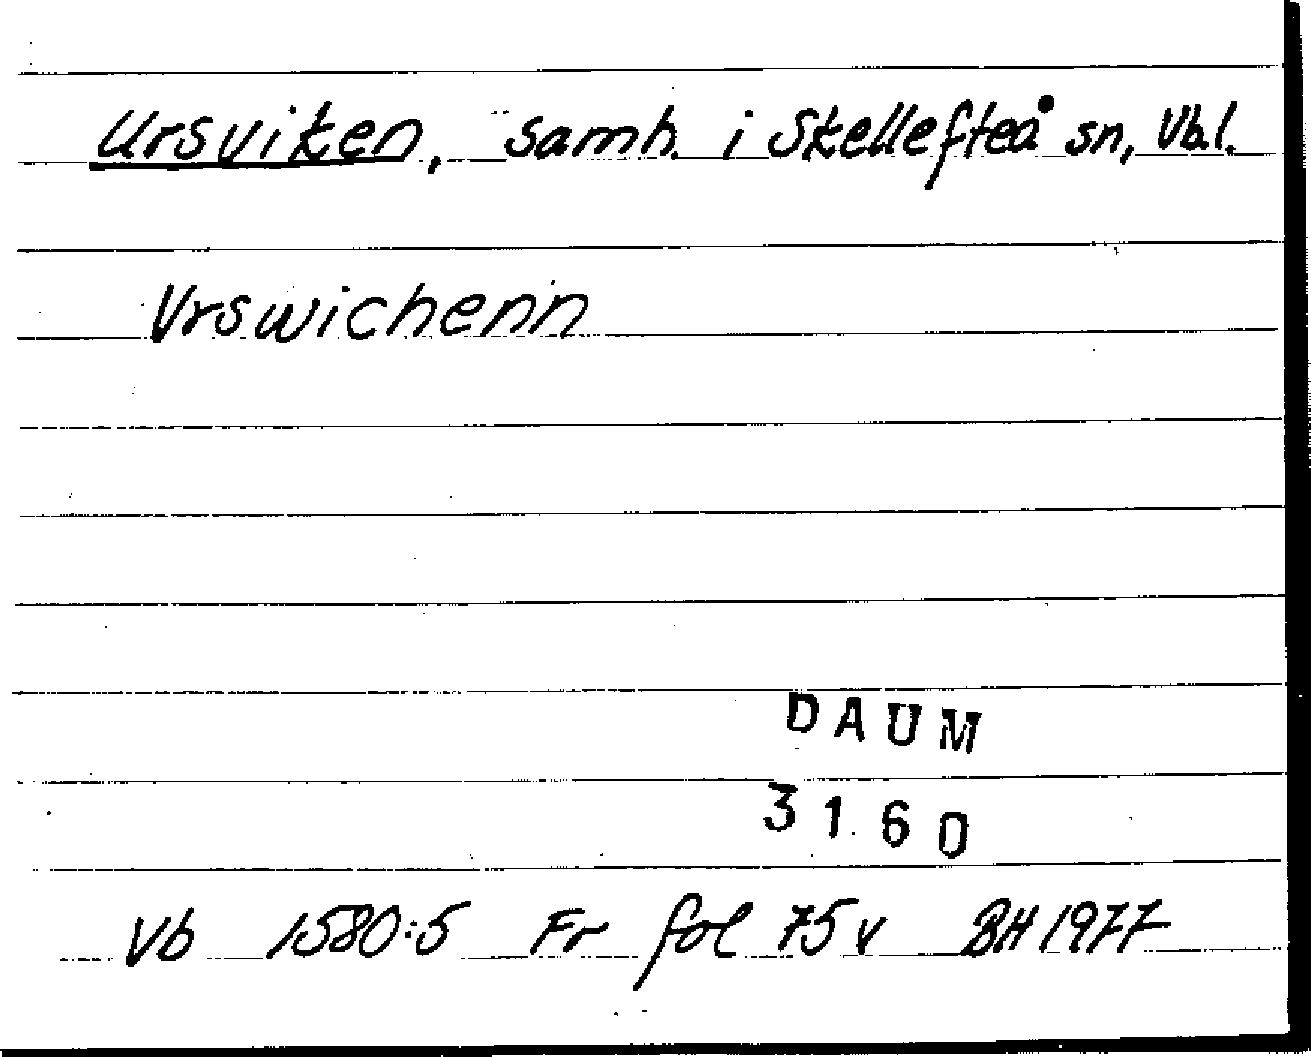 Ursviken, samh. i Skellefteå sn, Vb.l.
Vrswichenn
DAUM
3160
Vb 1580:5 Fr fol 75 v BH 1977